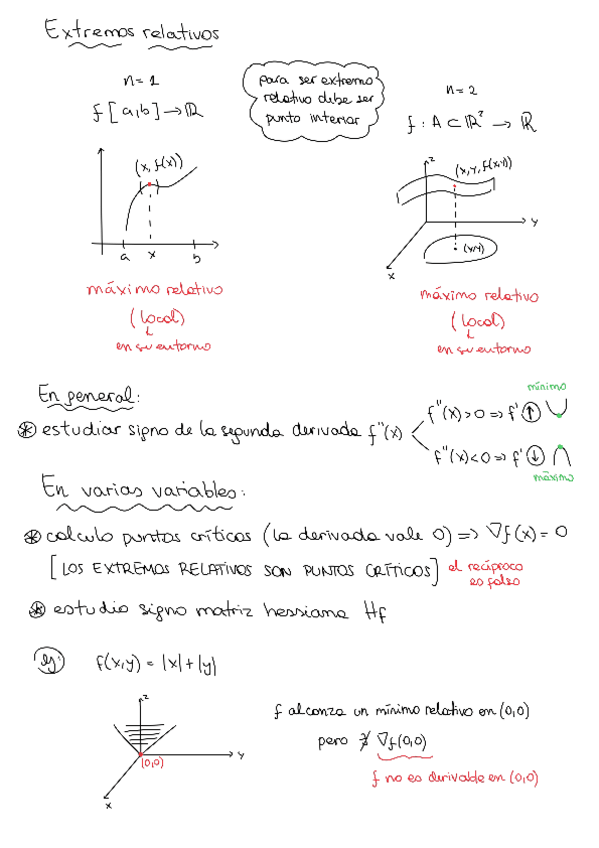 Extremos relativos
n = 1
f [a,b] → ℝ
para ser extremo
relativo debe ser
punto interior
n = 2
f : A ⊂ ℝ² → ℝ
(x, f(x))
a x b
máximo relativo
(local)
en su entorno
z
(x,y,f(x,y))
y
(x,y)
x
máximo relativo
(local)
en su entorno
En general:
⊛ estudiar signo de la segunda derivada f''(x)
f''(x)>0 ⇒ f' ↑
mínimo
f''(x)<0 ⇒ f' ↓
máximo
En varias variables:
⊛ calculo puntos críticos (la derivada vale 0) ⇒ ∇f(x) = 0
[LOS EXTREMOS RELATIVOS SON PUNTOS CRÍTICOS] el recíproco
es falso
⊛ estudio signo matriz hessiana Hf
ej: f(x,y) = |x| + |y|
z
y
(0,0)
x
f alcanza un mínimo relativo en (0,0)
pero ∄ ∇f(0,0)
f no es derivable en (0,0)